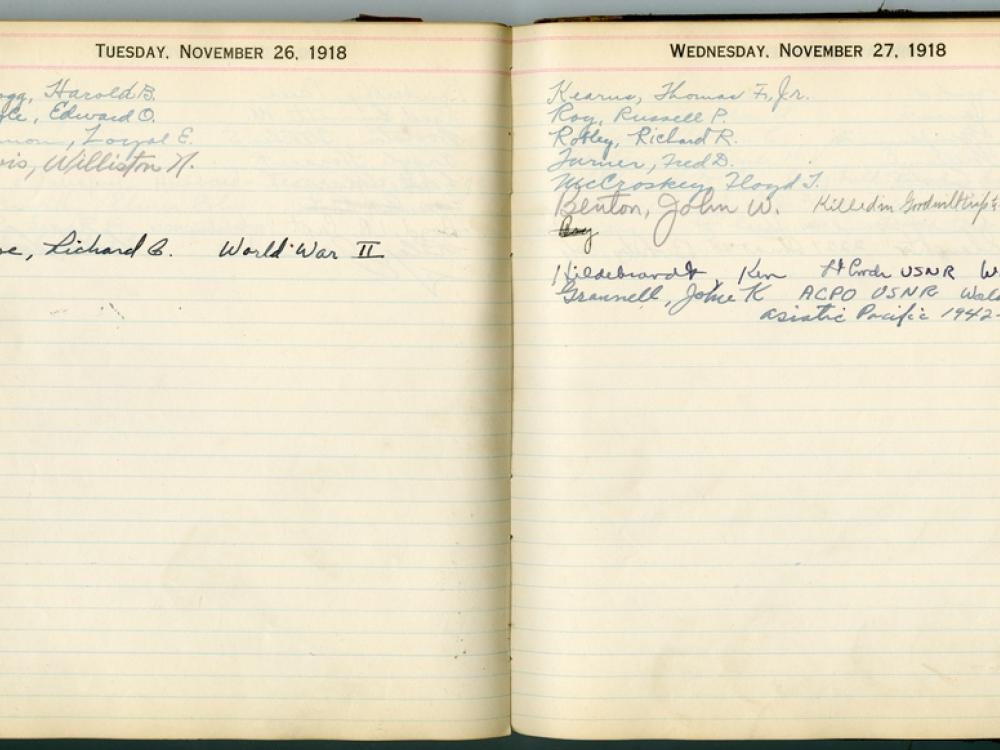 TUESDAY, NOVEMBER 26, 1918
Harold B.
Edward O.
Loyal E.
Williston N.
Richard C. World War II
WEDNESDAY, NOVEMBER 27, 1918
Kearns, Thomas F., Jr.
Roy, Russell P.
Robley, Richard R.
Turner, Fred D.
McCroskey, Floyd T.
Benton, John W. Killed in Goodwill trip
Hildebrandt, Ken USNR
Grannell, John K ACPO USNR
asiatic Pacific 1942-